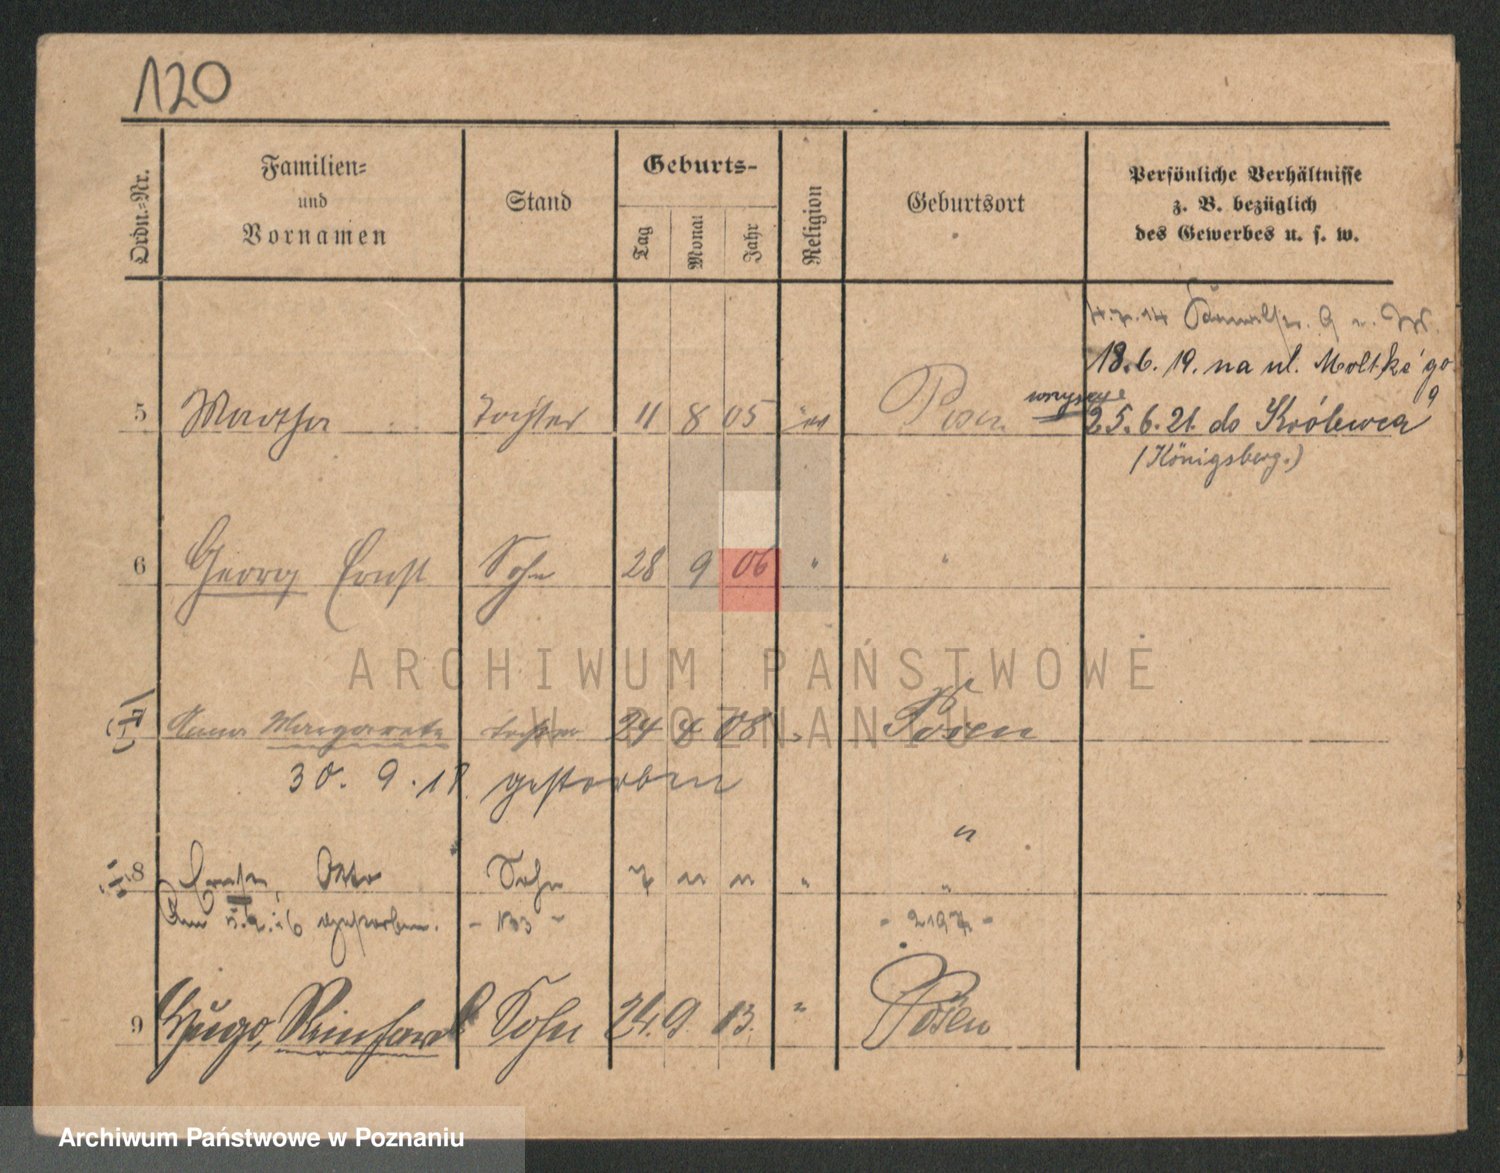 120
Ordn.-Nr.
Familien-
und
Vornamen
Stand
Geburts-
Tag
Monat
Jahr
Religion
Geburtsort
Persönliche Verhältnisse
z. B. bezüglich
des Gewerbes u. s. w.
18.6.19. na ul. Moltkégo 9
5 Martha Tochter 11 8 05 Posen 25.6.21. do Królewca
(Königsberg.)
6 Georg Ernst Sohn 28 9 06 " "
Anna Margarete Tochter 24 4 08 " Posen
30. 9. 18 gestorben
"
8 Otto Sohn " " " "
Am gestorben.
9 Hugo, Reinhard Sohn 24. 9. 13. " Posen
ARCHIWUM PAŃSTWOWE
W POZNANIU
Archiwum Państwowe w Poznaniu